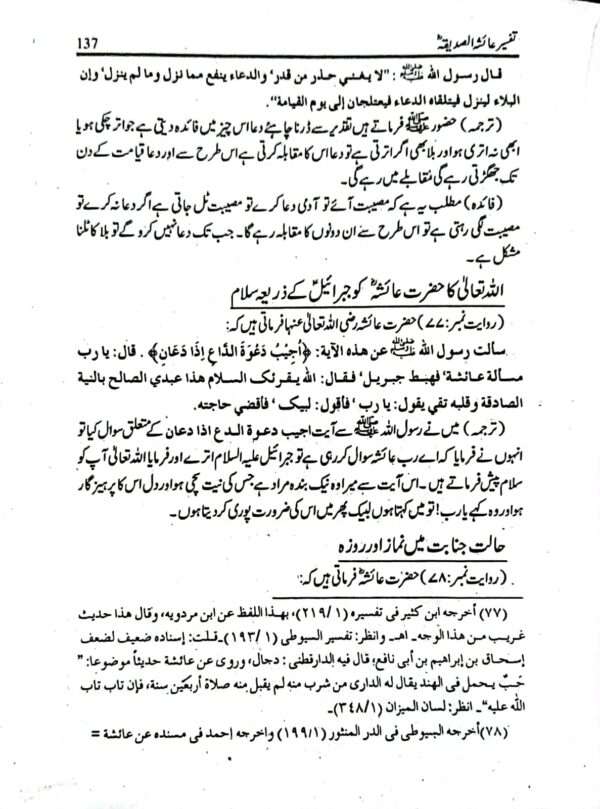 تفسیر عائشہ الصدیقہؓ
137
قال رسول الله ﷺ: "لا يغني حذر من قدر' والدعاء ينفع مما نزل وما لم ينزل' وإن
البلاء لينزل فيتلقاه الدعاء فيعتلجان إلى يوم القيامة".
(ترجمہ) حضور ﷺ فرماتے ہیں تقدیر سے ڈرنا چاہئے دعا اس چیز میں فائدہ دیتی ہے جو اتر چکی ہو یا
ابھی نہ اتری ہو اور بلا بھی اگر اترتی ہے تو دعا اس کا مقابلہ کرتی ہے اس طرح سے اور دعا قیامت کے دن
تک جھگڑتی رہے گی مقابلے میں رہے گی۔
(فائدہ) مطلب یہ ہے کہ مصیبت آئے تو آدمی دعا کرے تو مصیبت ٹل جاتی ہے اگر دعا نہ کرے تو
مصیبت لگی رہتی ہے تو اس طرح سے ان دونوں کا مقابلہ رہے گا۔ جب تک دعا نہیں کرو گے تو بلا کا ٹلنا
مشکل ہے۔
اللہ تعالیٰ کا حضرت عائشہؓ کو جبرائیلؑ کے ذریعہ سلام
(روایت نمبر: ۷۷) حضرت عائشہ رضی اللہ تعالیٰ عنہا فرماتی ہیں کہ:
سألت رسول الله ﷺ عن هذه الآية: ﴿أُجِيْبُ دَعْوَةَ الدَّاعِ إِذَا دَعَانِ﴾. قال: يا رب
مسألة عائشة' فهبط جبريل' فقال: الله يقرئك السلام هذا عبدي الصالح بالنية
الصادقة وقلبه تقي يقول: يا رب' فأقول: لبيك' فأقضي حاجته.
(ترجمہ) میں نے رسول اللہ ﷺ سے آیت اجیب دعوۃ الدع اذا دعان کے متعلق سوال کیا تو
انہوں نے فرمایا کہ اے رب عائشہ سوال کر رہی ہے تو جبرائیل علیہ السلام اترے اور فرمایا اللہ تعالیٰ آپ کو
سلام پیش فرماتے ہیں۔ اس آیت سے میرا وہ نیک بندہ مراد ہے جس کی نیت سچی ہو اور دل اس کا پرہیز گار
ہو اور وہ کہے یا رب! تو میں کہتا ہوں لبیک پھر میں اس کی ضرورت پوری کر دیتا ہوں۔
حالت جنابت میں نماز اور روزہ
(روایت نمبر: ۷۸) حضرت عائشہؓ فرماتی ہیں کہ:
(۷۷) أخرجه ابن كثير فى تفسيره (۱/۲۱۹)، بهذا اللفظ عن ابن مردويه، وقال هذا حديث
غريب من هذا الوجه۔ اهـ۔ وانظر: تفسير السيوطي (۱/۱۹۳)۔ قلت: إسناده ضعيف لضعف
إسحاق بن إبراهيم بن أبي نافع، قال فيه الدارقطني: دجال، وروى عن عائشة حديثاً موضوعا: "
حَبٌ يحمل فى الهند يقال له الدارى من شرب منه لم يقبل منه صلاة أربعين سنة، فإن تاب تاب
الله عليه"۔ انظر: لسان الميزان (۱/۳۴۸)۔
(۷۸) أخرجه السيوطي فى الدر المنثور (۱/۱۹۹) واخرجه إحمد فى مسنده عن عائشة =